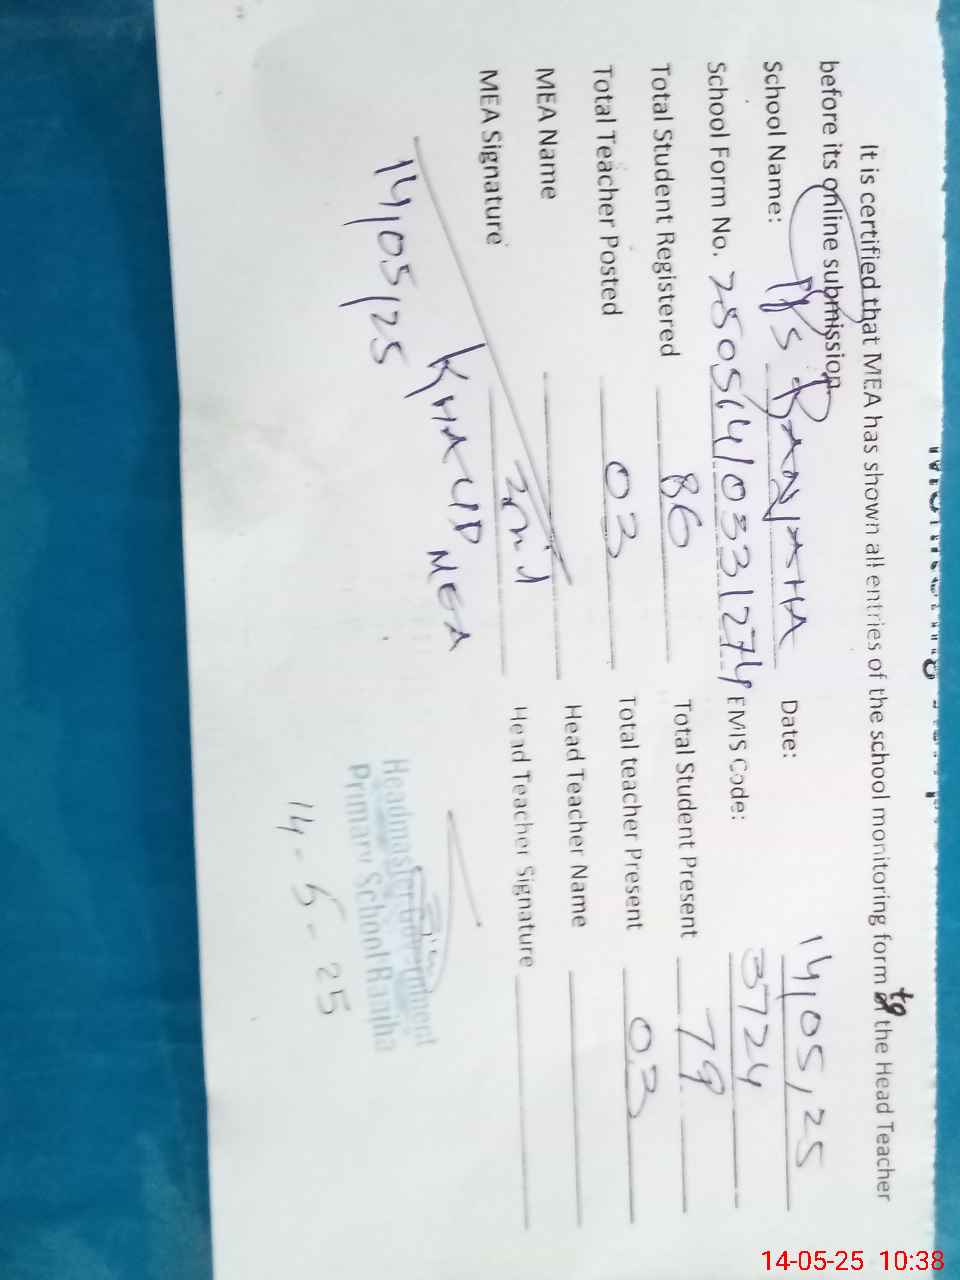 It is certified that MEA has shown all entries of the school monitoring form to the Head Teacher
before its online submission.
School Name: PS BANJAHA Date: 14,05,25
School Form No. 28051410331274 EMIS Code: 3724
Total Student Registered 86 Total Student Present 79
Total Teacher Posted 03 Total teacher Present 03
MEA Name Head Teacher Name
MEA Signature Head Teacher Signature
KHALID MEA
14,05,25
Headmaster Government
Primary School Banjha
14-5-25
14-05-25 10:38